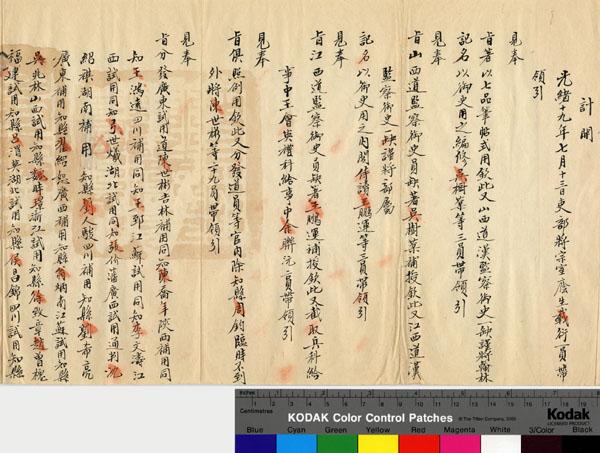 計開
光緒十九年七月十三日吏部將宗室蔭生載衍一員帶
領引
見奉
旨著以七品筆帖式用欽此又山西道漢監察御史一缺謹將翰林
記名以御史用之編修吳樹棻等三員帶領引
見奉
旨山西道監察御史員缺著吳樹棻補授欽此又江西道漢
監察御史一缺謹將部屬
記名以御史用之內閣侍讀王鵬運等三員帶領引
見奉
旨江西道監察御史員缺著王鵬運補授欽此又截取兵科給
事中王會英禮科給事中金聯沅二員帶領引
見奉
旨俱照例用欽此又分發道員等官內除知縣周鈞臨時不到
外將陳世彬等二十九員帶領引
見奉
旨分發廣東試用道陳世彬吉林補用同知陳喬年陝西補用同
知王鴻遠四川補用同知王郅江蘇試用同知李文壽江
西試用同知李世熾湖北試用同知張价藩廣西試用通判沈
紹祺湖南補用知縣劉人駿四川補用知縣劉希亮
廣東補用知縣孔經魁廣西補用知縣翁炳南江蘇試用知縣
吳兆林山西試用知縣 試用知縣徐致章趙曾槐
福建試用知縣呂渭英湖北試用知縣侯昌錦四川試用知縣
Inches
Centimetres
KODAK Color Control Patches
© The Tiffen Company, 2000
Kodak
LICENSED PRODUCT
Blue Cyan Green Yellow Red Magenta White 3/Color Black